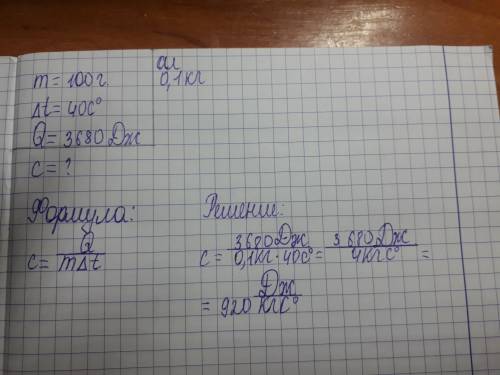 m = 100 г
си
0,1 кг
Δt = 40 C°
Q = 3680 Дж
c = ?
Формула:
c = Q / mΔt
Решение:
c = 3680 Дж / 0,1 кг · 40 C° = 3680 Дж / 4 кг C° =
= 920 Дж / кг C°